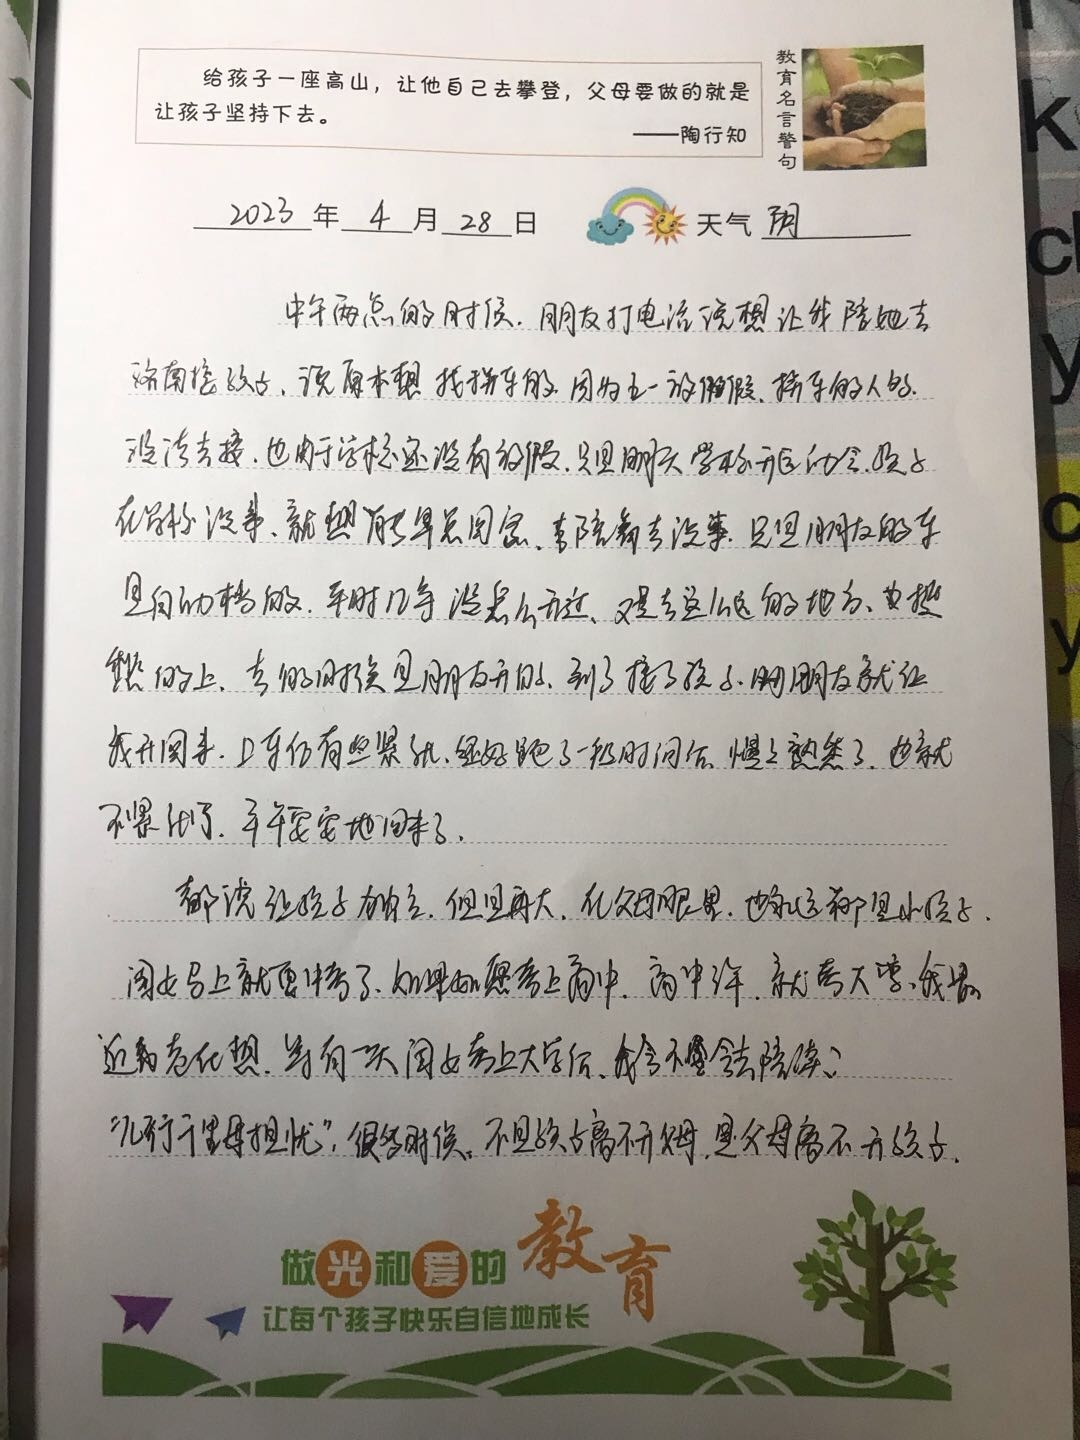 给孩子一座高山，让他自己去攀登，父母要做的就是
让孩子坚持下去。
——陶行知
教育名言警句
2023年4月28日 天气 阴
中午两点的时候，朋友打电话说想让我陪她去
洛南接孩子，说原本想找拼车的，因为五一放假，拼车的人
没法去接，也由于学校还没有放假，只是明天学校开运动会，孩子
在学校没事，就想着早点回家，去陪着去没事，只是朋友的车
是自动档的，平时几乎没怎么开过，又是去这么远的地方，要操
的上，去的时候是朋友开的，到了接了孩子，朋友就让
我开回来，上车仍有些紧张，还好跑了一段时间后，慢慢熟悉了，也就
不紧张了，平平安安地回来了。
都说让孩子独立，但是再大，在父母眼里，也永远都是小孩子，
闺女马上就要中考了，如果如愿考上高中，高中三年，就考大学，我最
近老在想，当有一天闺女考上大学后，我会不会去陪读？
“儿行千里母担忧”，很多时候，不是孩子离不开父母，是父母离不开孩子。
做光和爱的教育
让每个孩子快乐自信地成长